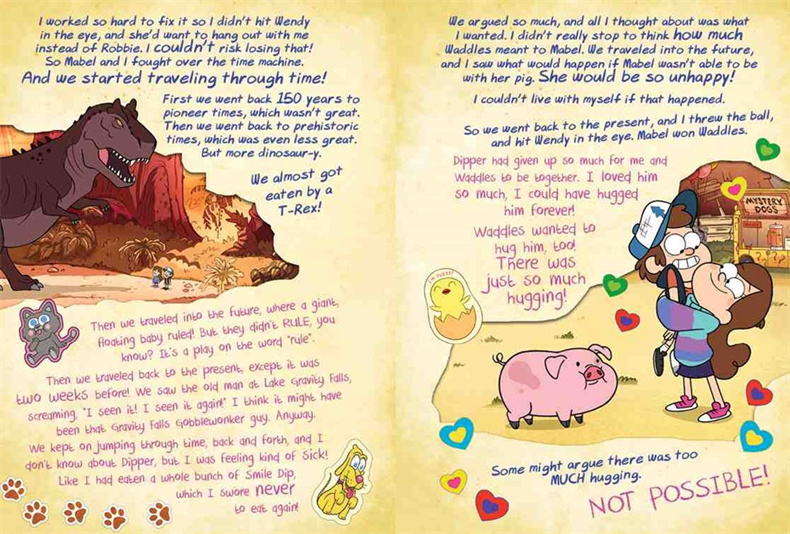 I worked so hard to fix it so I didn't hit Wendy
in the eye, and she'd want to hang out with me
instead of Robbie. I couldn't risk losing that!
So Mabel and I fought over the time machine.
And we started traveling through time!
First we went back 150 years to
pioneer times, which wasn't great.
Then we went back to prehistoric
times, which was even less great.
But more dinosaur-y.
We almost got
eaten by a
T-Rex!
Then we traveled into the future, where a giant,
floating baby ruled! But they didn't RULE, you
know? It's a play on the word "rule".
Then we traveled back to the present, except it was
two weeks before! We saw the old man at Lake Gravity Falls,
screaming, "I seen it! I seen it again!" I think it might have
been that Gravity Falls Gobblewonker guy. Anyway.
We kept on jumping through time, back and forth, and I
don't know about Dipper, but I was feeling kind of sick!
Like I had eaten a whole bunch of Smile Dip,
which I swore never
to eat again!
We argued so much, and all I thought about was what
I wanted. I didn't really stop to think how much
Waddles meant to Mabel. We traveled into the future,
and I saw what would happen if Mabel wasn't able to be
with her pig. She would be so unhappy!
I couldn't live with myself if that happened.
So we went back to the present, and I threw the ball,
and hit Wendy in the eye. Mabel won Waddles.
Dipper had given up so much for me and
Waddles to be together. I loved him
so much, I could have hugged
him forever!
Waddles wanted to
hug him, too!
There was
just so much
hugging!
MYSTERY
DOGS
Some might argue there was too
MUCH hugging.
NOT POSSIBLE!